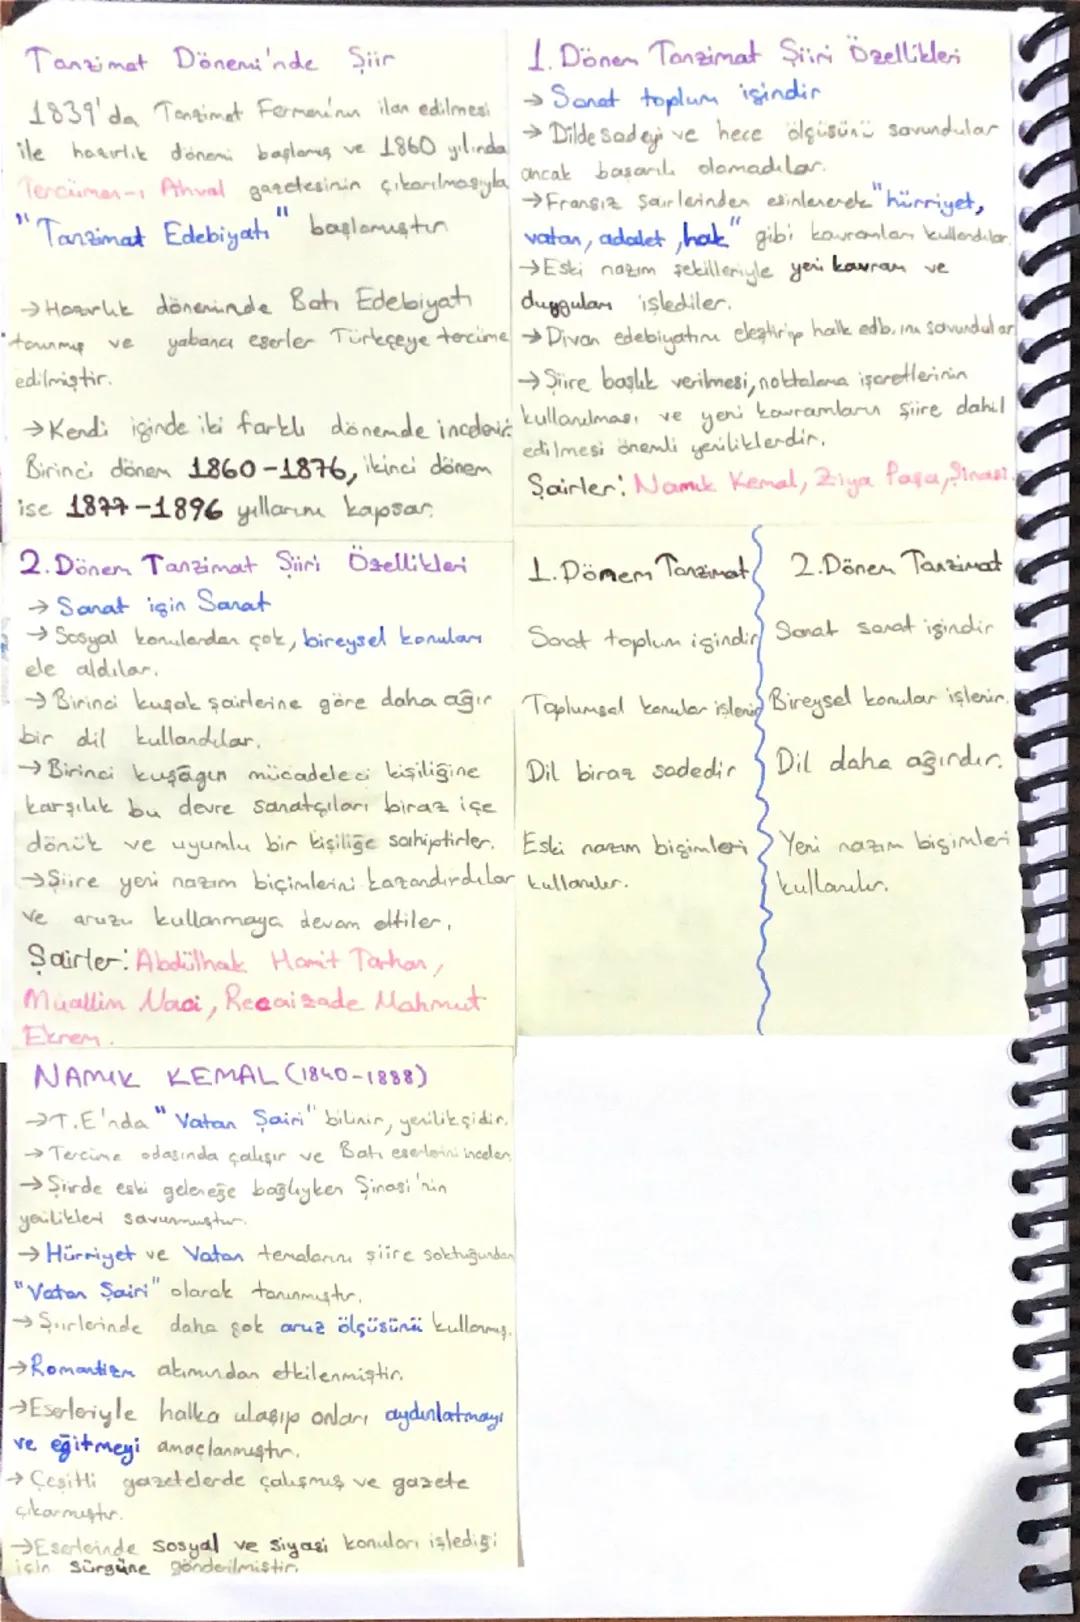 Tanzimat Dönemi'nde Şiir
1839'da Tanzimat Fermanı'nın ilan edilmesi
ile hazırlık dönemi başlamış ve 1860 yılında
Tercüman-ı Ahval gazetesinin çıkarılmasıyla
"Tanzimat Edebiyatı" başlamıştır
→Hazırlık döneminde Batı Edebiyatı
tanınmış ve yabancı eserler Türkçeye tercüme
edilmiştir.
→Kendi içinde iki farklı dönemde incelenir.
Birinci dönem 1860-1876, ikinci dönem
ise 1877-1896 yıllarını kapsar.
1. Dönem Tanzimat Şiiri Özellikleri
→ Sanat toplum içindir
→ Dilde sadeyi ve hece ölçüsünü savundular
ancak başarılı olamadılar.
→Fransız şairlerinden esinlenerek "hürriyet,
vatan, adalet, hak" gibi kavramları kullandılar.
→Eski nazım şekilleriyle yeni kavram ve
duyguları işlediler.
→Divan edebiyatını eleştirip halk edb.ını savundular
→Şiire başlık verilmesi, noktalama işaretlerinin
kullanılması ve yeni kavramların şiire dahil
edilmesi önemli yeniliklerdir.
Şairler: Namık Kemal, Ziya Paşa, Şinasi.
2. Dönem Tanzimat Şiiri Özellikleri
→ Sanat için Sanat
→ Sosyal konulardan çok, bireysel konuları
ele aldılar.
→Birinci kuşak şairlerine göre daha ağır
bir dil kullandılar.
→Birinci kuşağın mücadeleci kişiliğine
karşılık bu devre sanatçıları biraz içe
dönük ve uyumlu bir kişiliğe sahiptirler.
→Şiire yeni nazım biçimlerini kazandırdılar
ve aruzu kullanmaya devam ettiler.
Şairler: Abdülhak Hamit Tarhan,
Muallim Naci, Recaizade Mahmut
Ekrem.
1. Dönem Tanzimat
Sanat toplum içindir
Toplumsal konular işlenir
Dil biraz sadedir
Eski nazım biçimleri
kullanılır.
2. Dönem Tanzimat
Sanat sanat içindir
Bireysel konular işlenir.
Dil daha ağırdır.
Yeni nazım biçimleri
kullanılır.
NAMIK KEMAL (1840-1888)
→T.E'nda "Vatan Şairi" bilinir, yenilikçidir.
→ Tercüme odasında çalışır ve Batı eserlerini inceler.
→Şiirde eski geleneğe bağlıyken Şinasi'nin
yenilikleri savunmuştur.
→ Hürriyet ve Vatan temalarını şiire soktuğundan
"Vatan Şairi" olarak tanınmıştır.
→ Şiirlerinde daha çok aruz ölçüsünü kullanmış.
→Romantizm akımından etkilenmiştir.
→Eserleriyle halka ulaşıp onları aydınlatmayı
ve eğitmeyi amaçlanmıştır.
→ Çeşitli gazetelerde çalışmış ve gazete
çıkarmıştır.
→Eserlerinde sosyal ve siyasi konuları işlediği
için sürgüne gönderilmiştir.